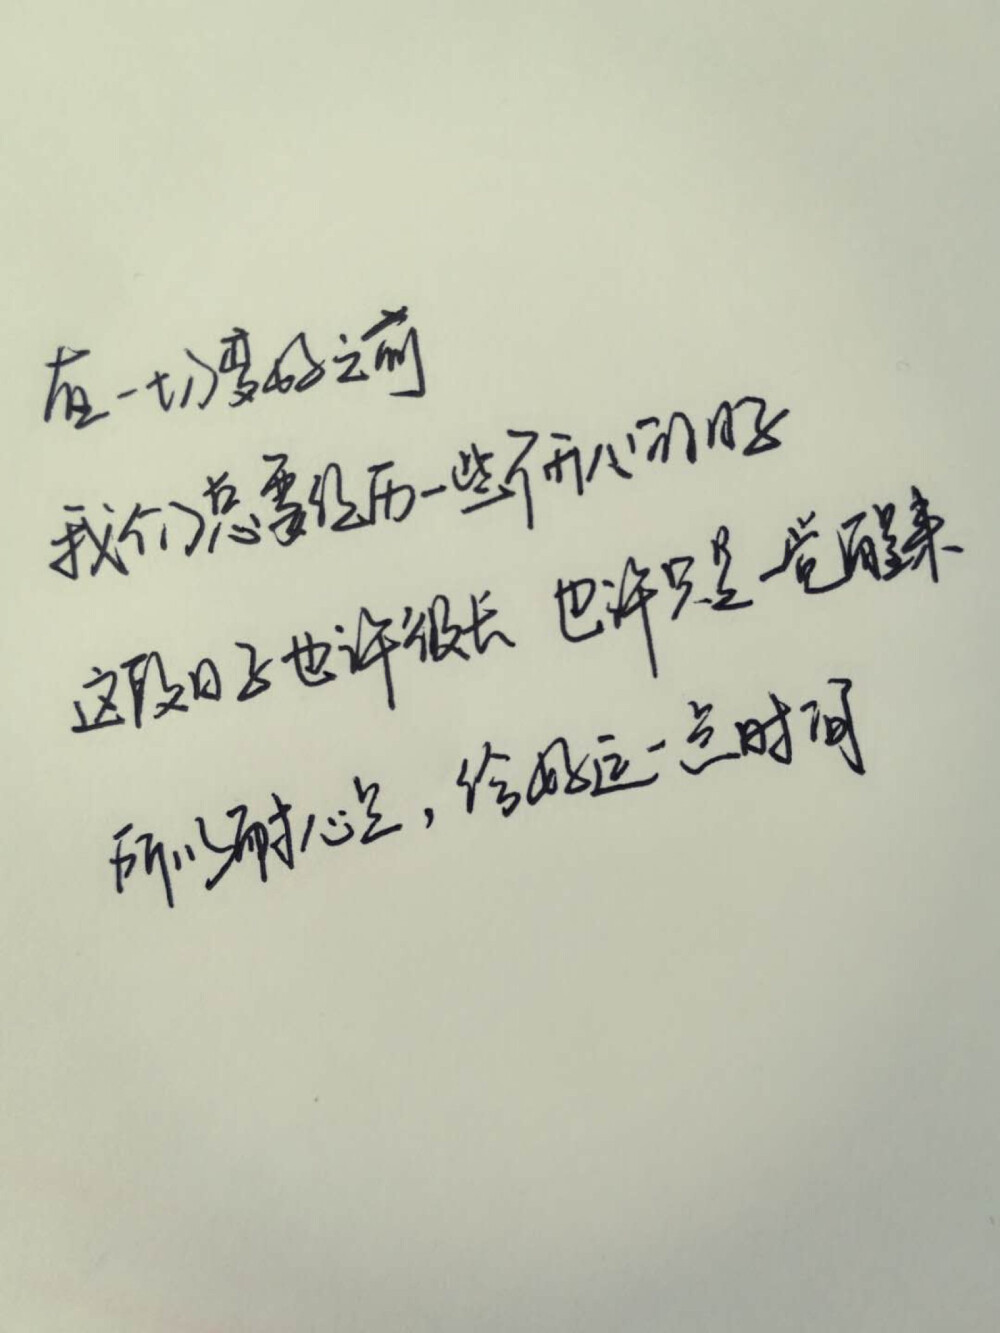 在一切变好之前
我们总要经历一些不开心的日子
这段日子也许很长 也许只是一觉醒来
所以耐心点，给好运一点时间